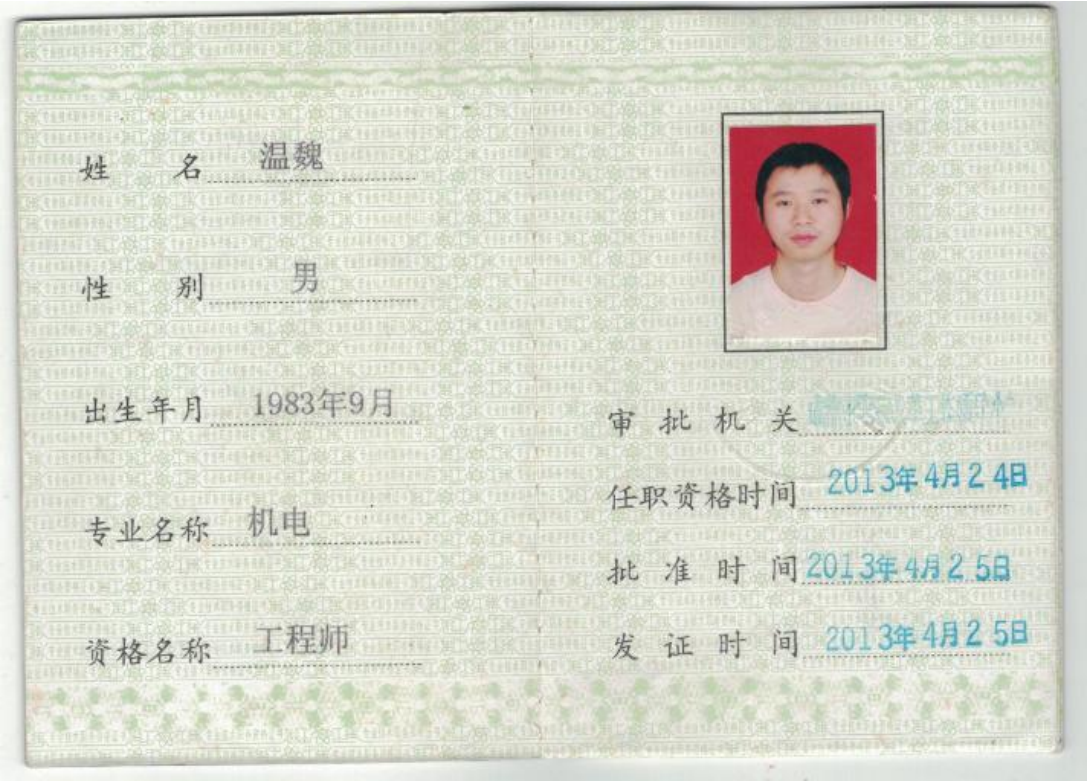 姓名 温魏
性别 男
出生年月 1983年9月
专业名称 机电
资格名称 工程师
审批机关
任职资格时间 2013年4月24日
批准时间 2013年4月25日
发证时间 2013年4月25日